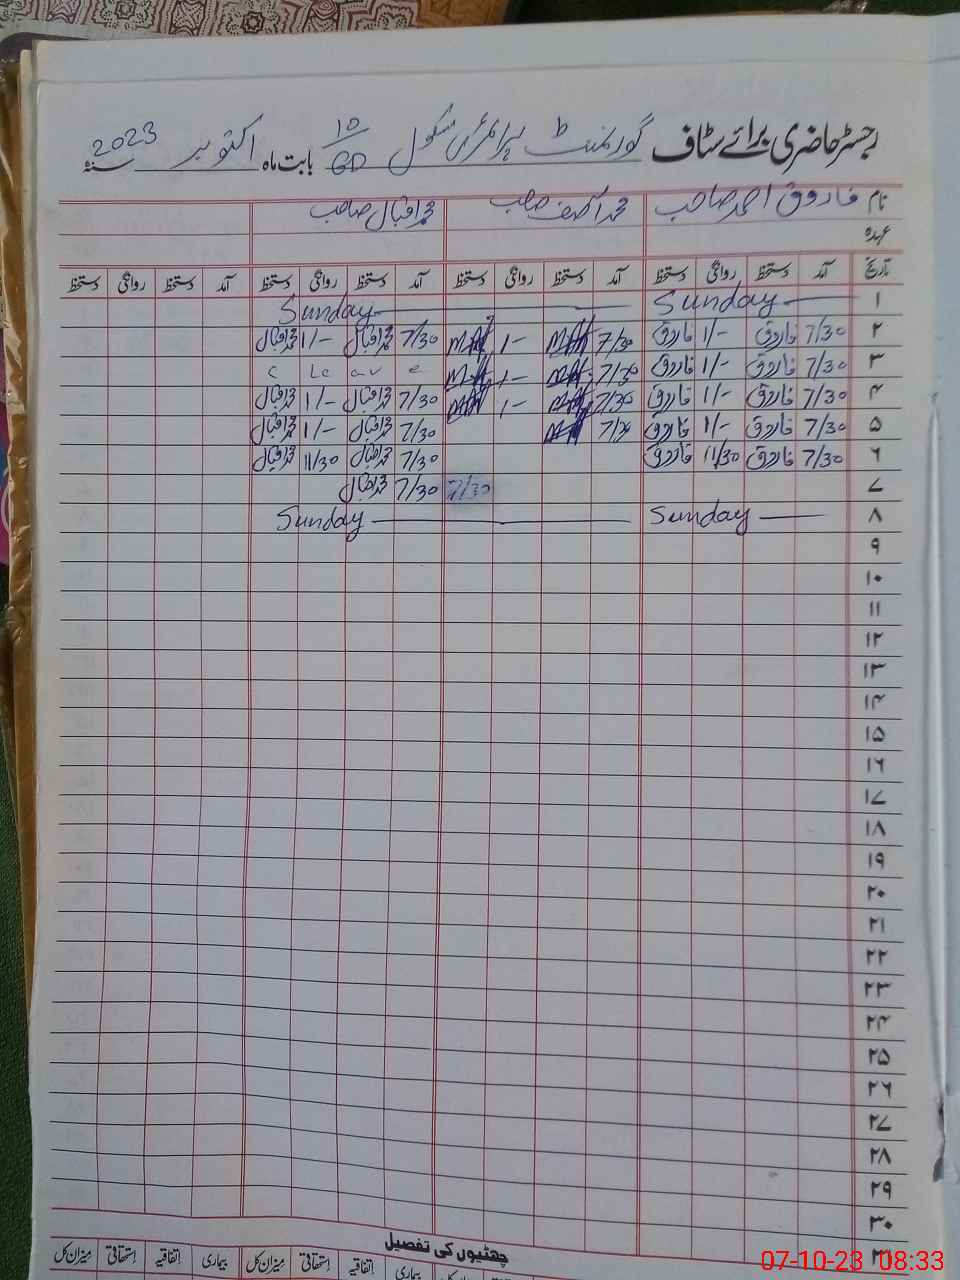 رجسٹر حاضری برائے سٹاف گورنمنٹ پرائمری سکول 10/GD بابت ماہ اکتوبر سنہ 2023
نام فاروق احمد صاحب محمد آصف صاحب محمد اقبال صاحب
عہدہ
تاریخ آمد دستخط روانگی دستخط آمد دستخط روانگی دستخط آمد دستخط روانگی دستخط آمد دستخط روانگی دستخط
۱ Sunday Sunday
۲ 7/30 فاروق 1/- فاروق 7/30 1/- 7/30 محمد اقبال 1/- محمد اقبال
۳ 7/30 فاروق 1/- فاروق 7/30 1/- c Le av e
۴ 7/30 فاروق 1/- فاروق 7/30 1/- 7/30 محمد اقبال 1/- محمد اقبال
۵ 7/30 فاروق 1/- فاروق 7/30 7/30 محمد اقبال 1/- محمد اقبال
۶ 7/30 فاروق 11/30 فاروق 7/30 محمد اقبال 11/30 محمد اقبال
۷ 7/30 7/30 محمد اقبال
۸ Sunday Sunday
۹
۱۰
۱۱
۱۲
۱۳
۱۴
۱۵
۱۶
۱۷
۱۸
۱۹
۲۰
۲۱
۲۲
۲۳
۲۴
۲۵
۲۶
۲۷
۲۸
۲۹
۳۰
۳۱
چھٹیوں کی تفصیل
بیماری میزان کل استحقاقی اتفاقیہ بیماری میزان کل استحقاقی اتفاقیہ
07-10-23 08:33